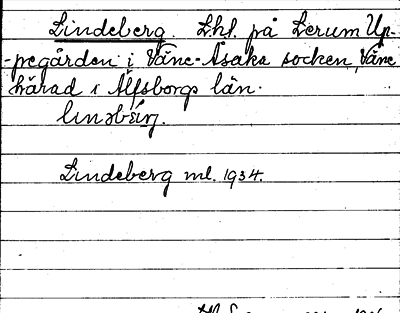 Lindeberg. Lhl. på Lerum Up-
-pegården i Väne-Åsaka socken, Väne
härad i Älfsborgs län.
Lindeberg ml. 1934.